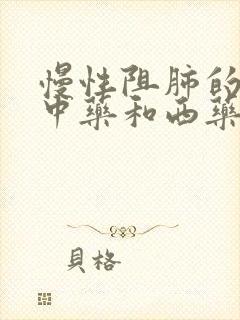 慢性阻肺的
中藥和西藥
貝格